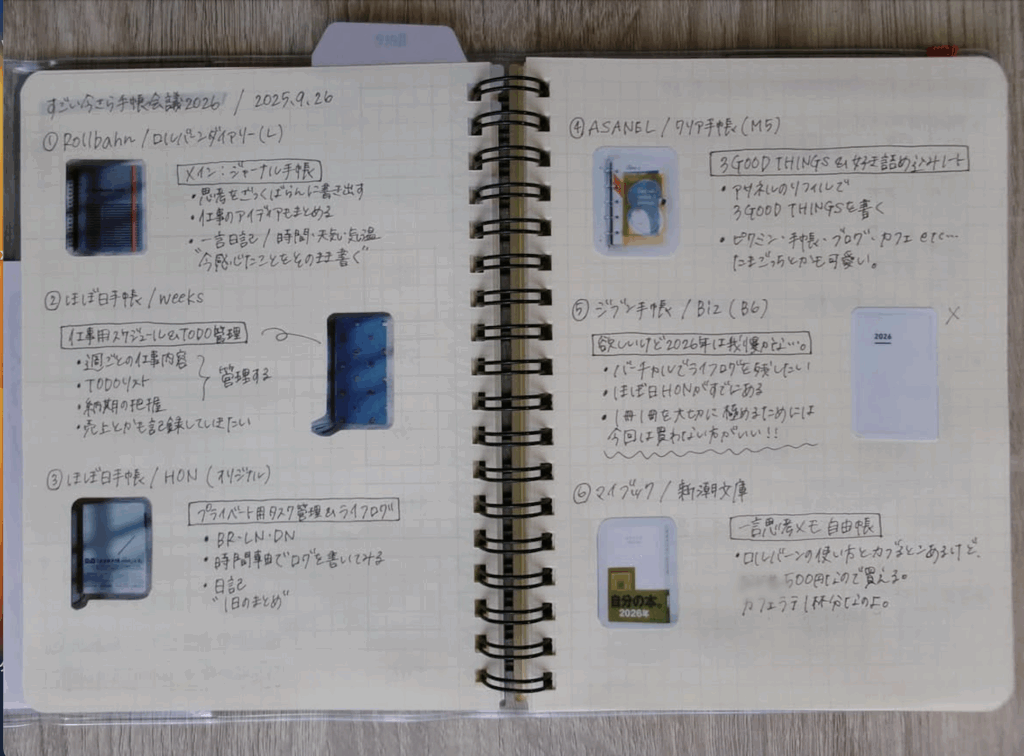 すごい今さら手帳会議2026 / 2025.9.26
① Rollbahn / ロルバーンダイアリー(L)
メイン：ジャーナル手帳
・思考をざっくばらんに書き出す
・仕事のアイディアもまとめる
・一言日記 / 時間・天気・気温
"今感じたことをそのまま書く"
② ほぼ日手帳 / weeks
仕事用スケジュール&TODO管理
・週ごとの仕事内容
・TODOリスト
・納期の把握
管理する
・売上とかも記録していきたい
③ ほぼ日手帳 / HON (オリジナル)
プライベート用タスク管理&ライフログ
・BR・LN・DN
・時間軸でログを書いてみる
・日記
"1日のまとめ"
④ ASANEL / クリア手帳(M5)
3 GOOD THINGS & 好き詰め込みノート
・アサネルのリフィルで
3 GOOD THINGSを書く
・ピクミン・手帳・ブログ・カフェ etc…
たまごっちとかも可愛い。
⑤ ジブン手帳 / Biz (B6)
欲しいけど2026年は我慢かな…。
・バーチカルでライフログを残したい
・ほぼ日HONがすでにある
・1冊1冊を大切に極めるためには
今回は買わない方がいい!!
2026
×
⑥ マイブック / 新潮文庫
一言思考メモ 自由帳
・ロルバーンの使い方とカブるとこあるけど、
500円なので買える。
カフェラテ1杯分なのよ。
自分の本。
2026年